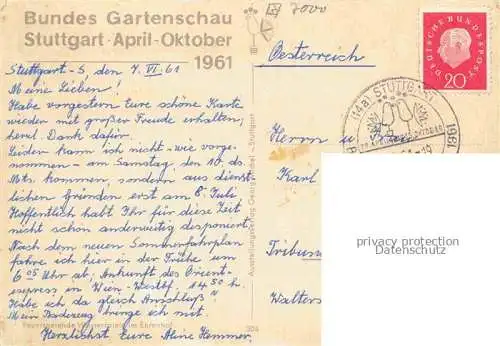 Bundes Gartenschau
Stuttgart · April-Oktober
1961
7000
Stuttgart-S, den 7. VI. 61
Meine Lieben!
Habe vorgestern Eure schöne Karte
wieder mit großer Freude erhalten,
herzl. Dank dafür.
Leider kann ich nicht - wie vorge-
nommen - am Samstag, den 10. ds.
Mts. kommen, sondern aus dienst-
lichen Gründen erst am 8. Juli
Hoffentlich habt Ihr für diese Zeit
nicht schon anderweitig disponiert.
Nach dem neuen Sommerfahrplan
fahre ich hier in der Frühe um
6 05 Uhr ab; Ankunft des Orient-
express in Wien-Westbf. 14 50 h.
Habe ich da gleich Anschluß?
Mein Badezeug bringe ich mit.
Herzlichst Eure Aline Hemmer.
Feuerspeiende Wasserspiele im Ehrenhof
304
Stuttgart
Österreich
DEUTSCHE BUNDESPOST
20
(14a) STUTTGART
1961
Herrn u.
Karl
Tribus
Walters
privacy protection
Datenschutz